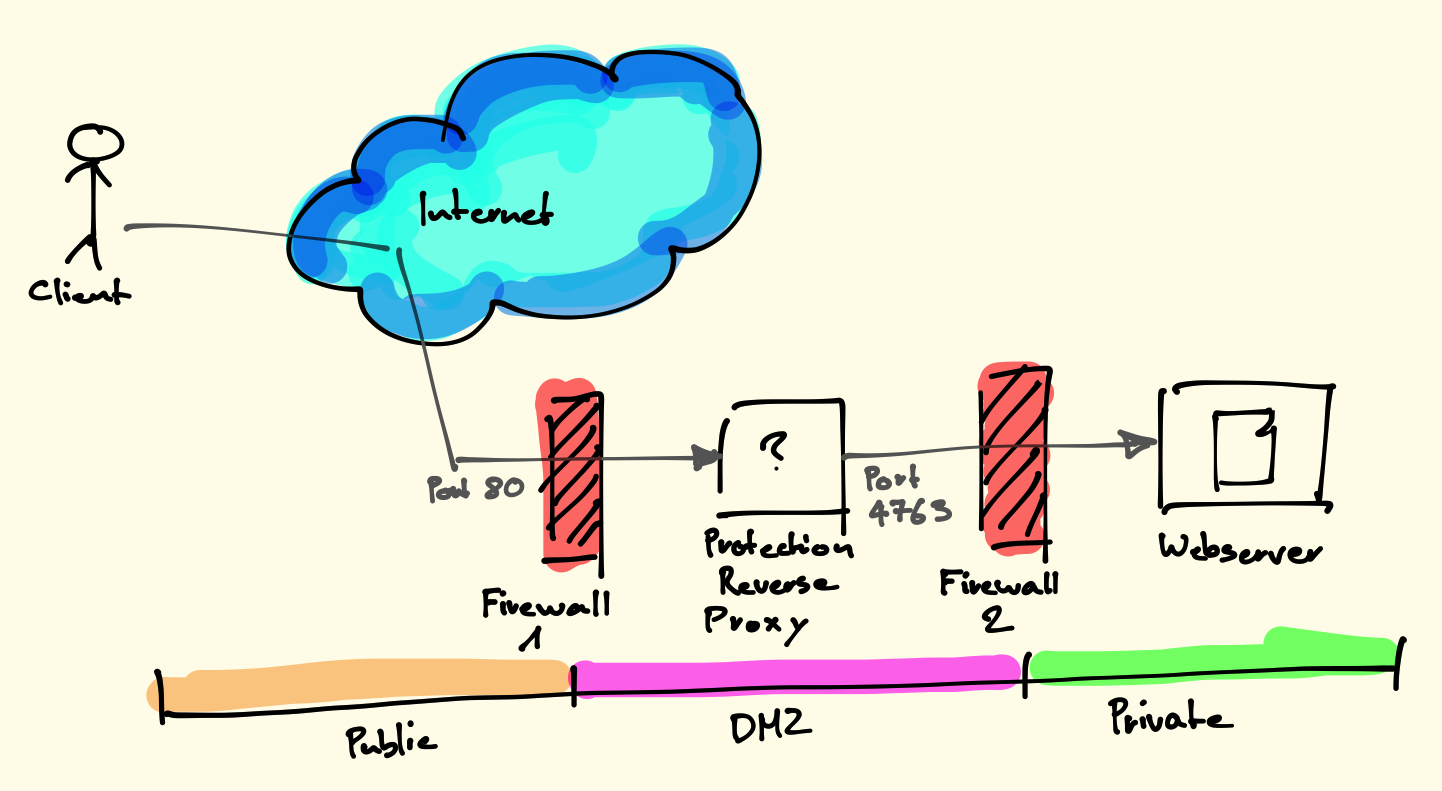 Internet
Client
Port 80
?
Port
4763
Firewall
1
Protection
Reverse
Proxy
Firewall
2
Webserver
Public
DMZ
Private